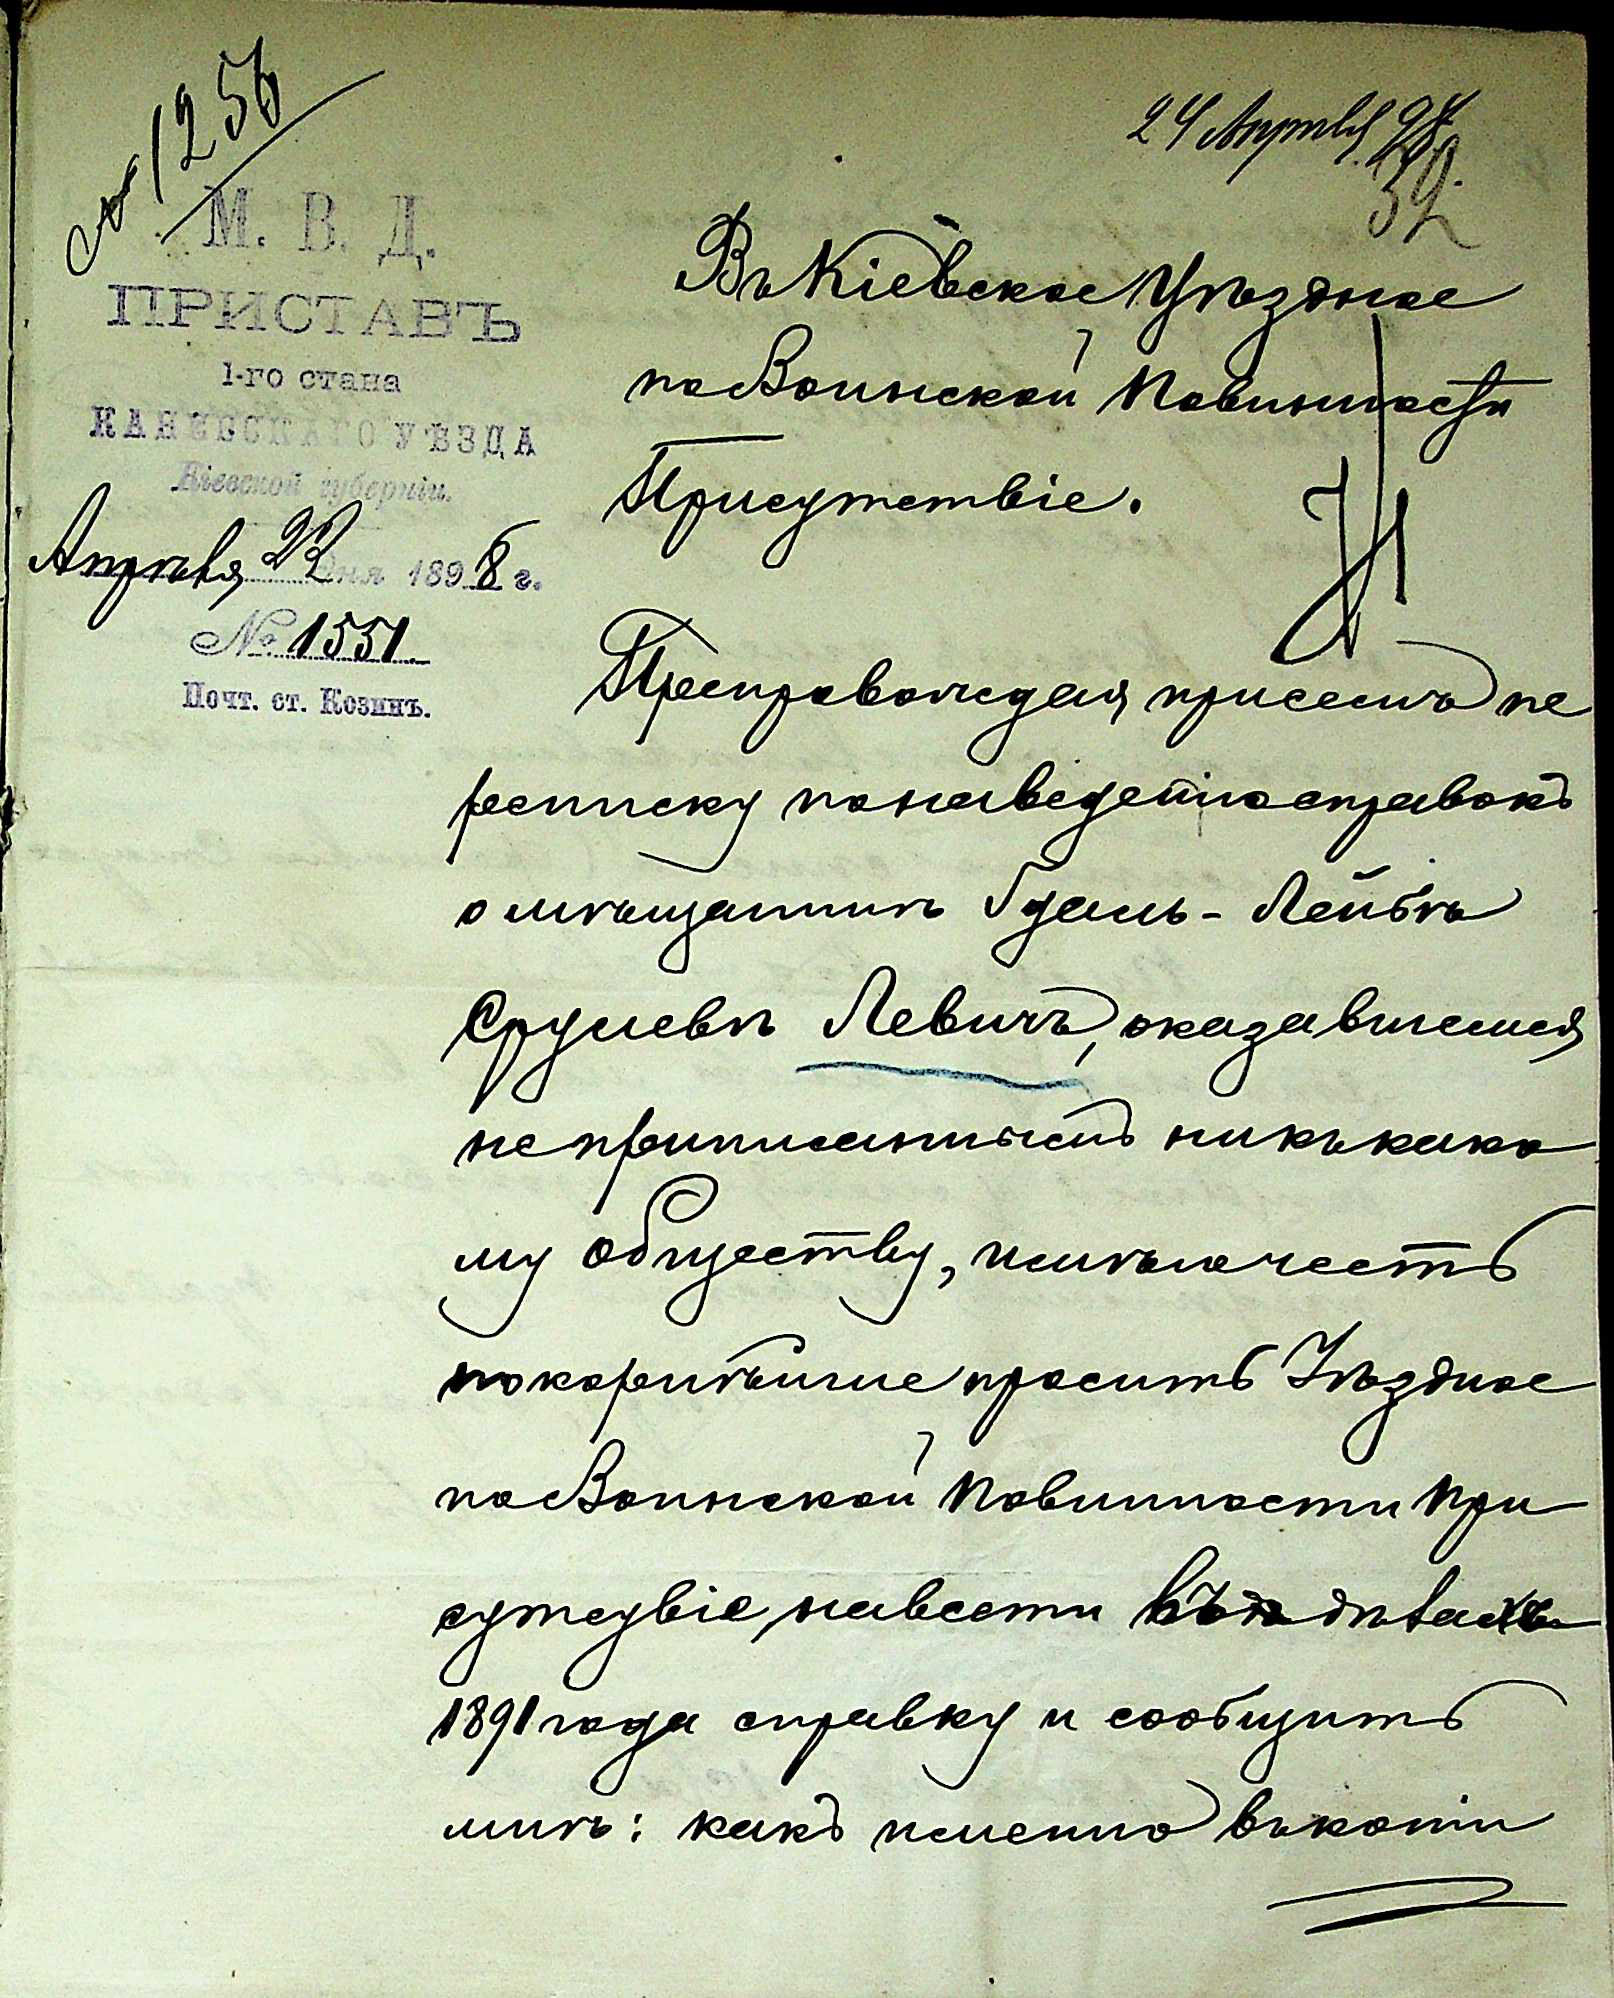 № 1256
24 Апрѣля 98.
39.
М. В. Д.
ПРИСТАВЪ
1-го стана
КАНЕВСКАГО УѢЗДА
Кіевской губерніи.
Апрѣля 22 дня 1898 г.
№ 1551.
Почт. ст. Козинъ.
Въ Кіевское Уѣздное
по Воинской Повинности
Присутствіе.
Препровождая при семъ пе
реписку по наведенію справокъ
о мѣщанинѣ Удаль-Лейбѣ
Срулевѣ Левичъ, оказавшемся
не приписаннымъ ни къ како
му обществу, имѣю честь
покорнѣйше просить Уѣздное
по Воинской Повинности При
сутсувіе, навести въ дѣлахъ
1891 года справку и сообщить
мнѣ: какъ именно въ копіи